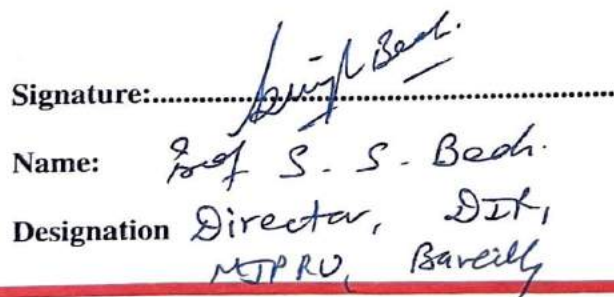 Signature:..............................
Name: Prof S. S. Bedi.
Designation Director, DIR,
MJPRU, Bareilly